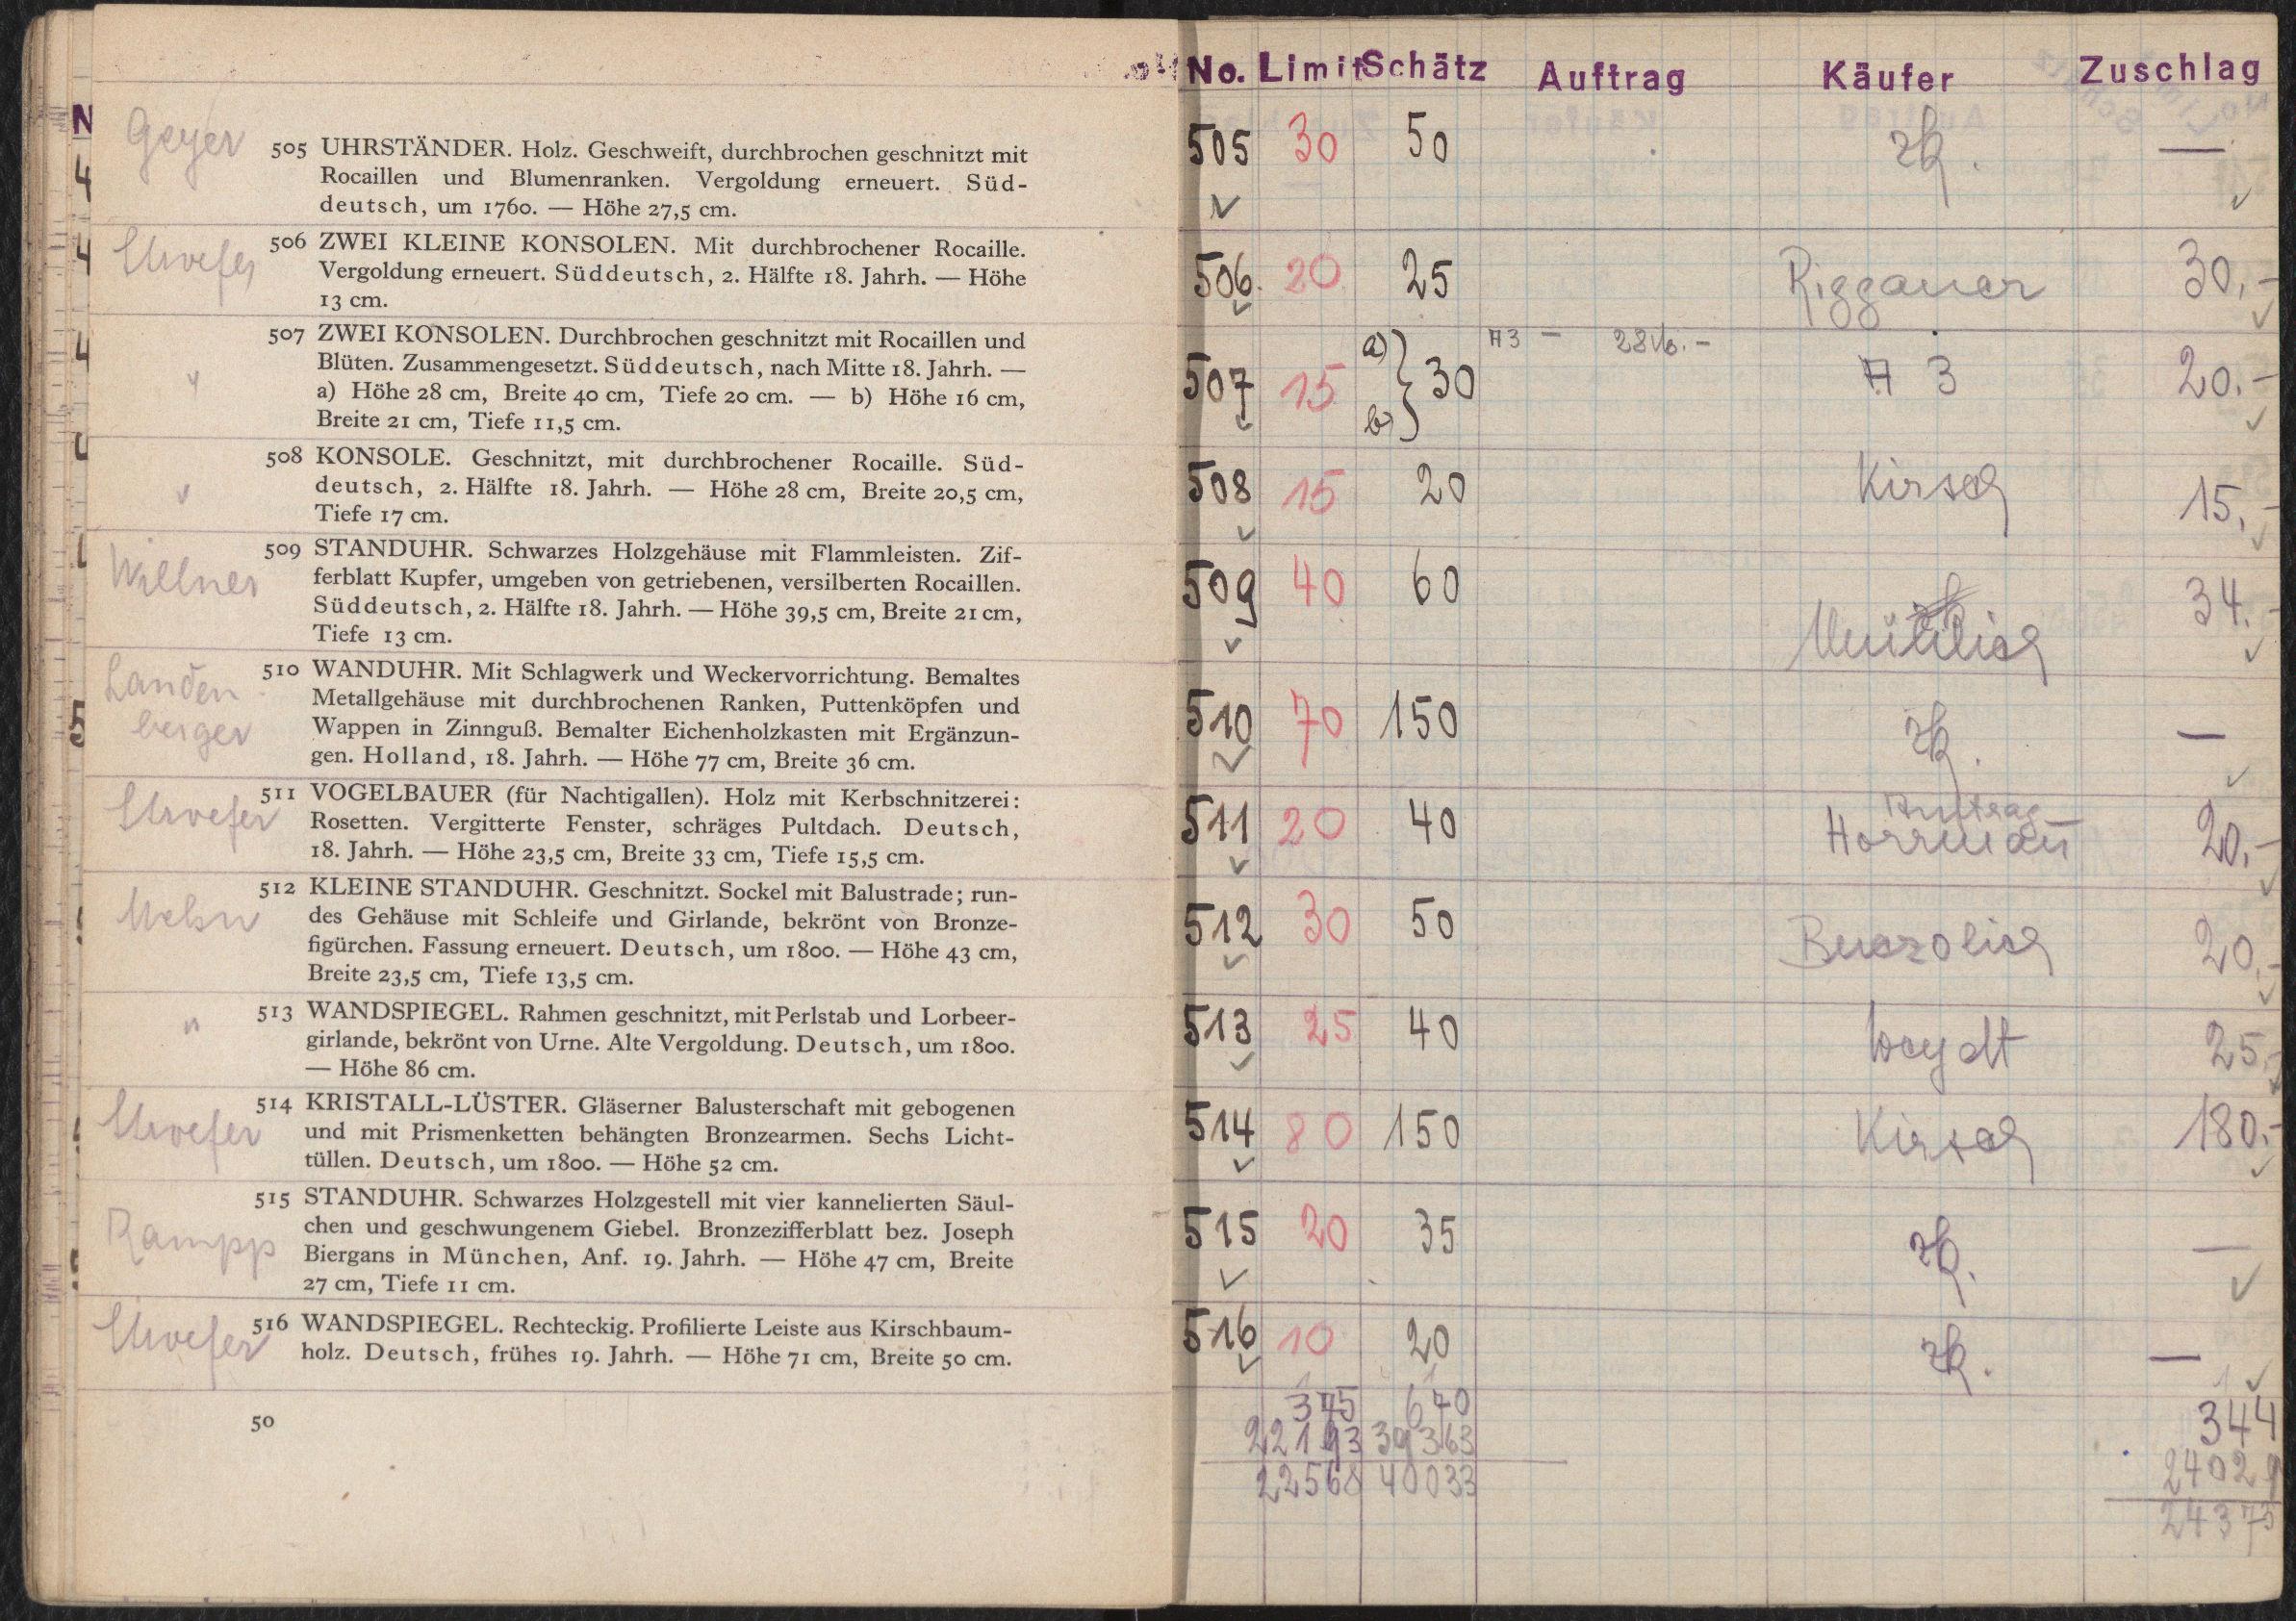 Geyer
505 UHRSTÄNDER. Holz. Geschweift, durchbrochen geschnitzt mit
Rocaillen und Blumenranken. Vergoldung erneuert. Süd-
deutsch, um 1760. — Höhe 27,5 cm.
506 ZWEI KLEINE KONSOLEN. Mit durchbrochener Rocaille.
Vergoldung erneuert. Süddeutsch, 2. Hälfte 18. Jahrh. — Höhe
13 cm.
507 ZWEI KONSOLEN. Durchbrochen geschnitzt mit Rocaillen und
Blüten. Zusammengesetzt. Süddeutsch, nach Mitte 18. Jahrh. —
a) Höhe 28 cm, Breite 40 cm, Tiefe 20 cm. — b) Höhe 16 cm,
Breite 21 cm, Tiefe 11,5 cm.
508 KONSOLE. Geschnitzt, mit durchbrochener Rocaille. Süd-
deutsch, 2. Hälfte 18. Jahrh. — Höhe 28 cm, Breite 20,5 cm,
Tiefe 17 cm.
Willner
509 STANDUHR. Schwarzes Holzgehäuse mit Flammleisten. Zif-
ferblatt Kupfer, umgeben von getriebenen, versilberten Rocaillen.
Süddeutsch, 2. Hälfte 18. Jahrh. — Höhe 39,5 cm, Breite 21 cm,
Tiefe 13 cm.
Landen
berger
510 WANDUHR. Mit Schlagwerk und Weckervorrichtung. Bemaltes
Metallgehäuse mit durchbrochenen Ranken, Puttenköpfen und
Wappen in Zinnguß. Bemalter Eichenholzkasten mit Ergänzun-
gen. Holland, 18. Jahrh. — Höhe 77 cm, Breite 36 cm.
511 VOGELBAUER (für Nachtigallen). Holz mit Kerbschnitzerei:
Rosetten. Vergitterte Fenster, schräges Pultdach. Deutsch,
18. Jahrh. — Höhe 23,5 cm, Breite 33 cm, Tiefe 15,5 cm.
512 KLEINE STANDUHR. Geschnitzt. Sockel mit Balustrade; run-
des Gehäuse mit Schleife und Girlande, bekrönt von Bronze-
figürchen. Fassung erneuert. Deutsch, um 1800. — Höhe 43 cm,
Breite 23,5 cm, Tiefe 13,5 cm.
513 WANDSPIEGEL. Rahmen geschnitzt, mit Perlstab und Lorbeer-
girlande, bekrönt von Urne. Alte Vergoldung. Deutsch, um 1800.
— Höhe 86 cm.
514 KRISTALL-LÜSTER. Gläserner Balusterschaft mit gebogenen
und mit Prismenketten behängten Bronzearmen. Sechs Licht-
tüllen. Deutsch, um 1800. — Höhe 52 cm.
Rampp
515 STANDUHR. Schwarzes Holzgestell mit vier kannelierten Säul-
chen und geschwungenem Giebel. Bronzezifferblatt bez. Joseph
Biergans in München, Anf. 19. Jahrh. — Höhe 47 cm, Breite
27 cm, Tiefe 11 cm.
516 WANDSPIEGEL. Rechteckig. Profilierte Leiste aus Kirschbaum-
holz. Deutsch, frühes 19. Jahrh. — Höhe 71 cm, Breite 50 cm.
50
No. Limit Schätz Auftrag Käufer Zuschlag
505 30 50 —
506. 20 25 Riggauer 30,-
507 15 a) b) } 30 A 3 20.-
508 15 20 Kirsch 15,-
509 40 60 34.-
510 70 150 —
511 20 40 Auftrag Horrmañ 20,-
512 30 50 20,-
513 25 40 Weydt 25,-
514 80 150 Kirsch 180.-
515 20 35 —
516 10 20 —
375 670 344
22193 39363 24029
22568 40033 24373